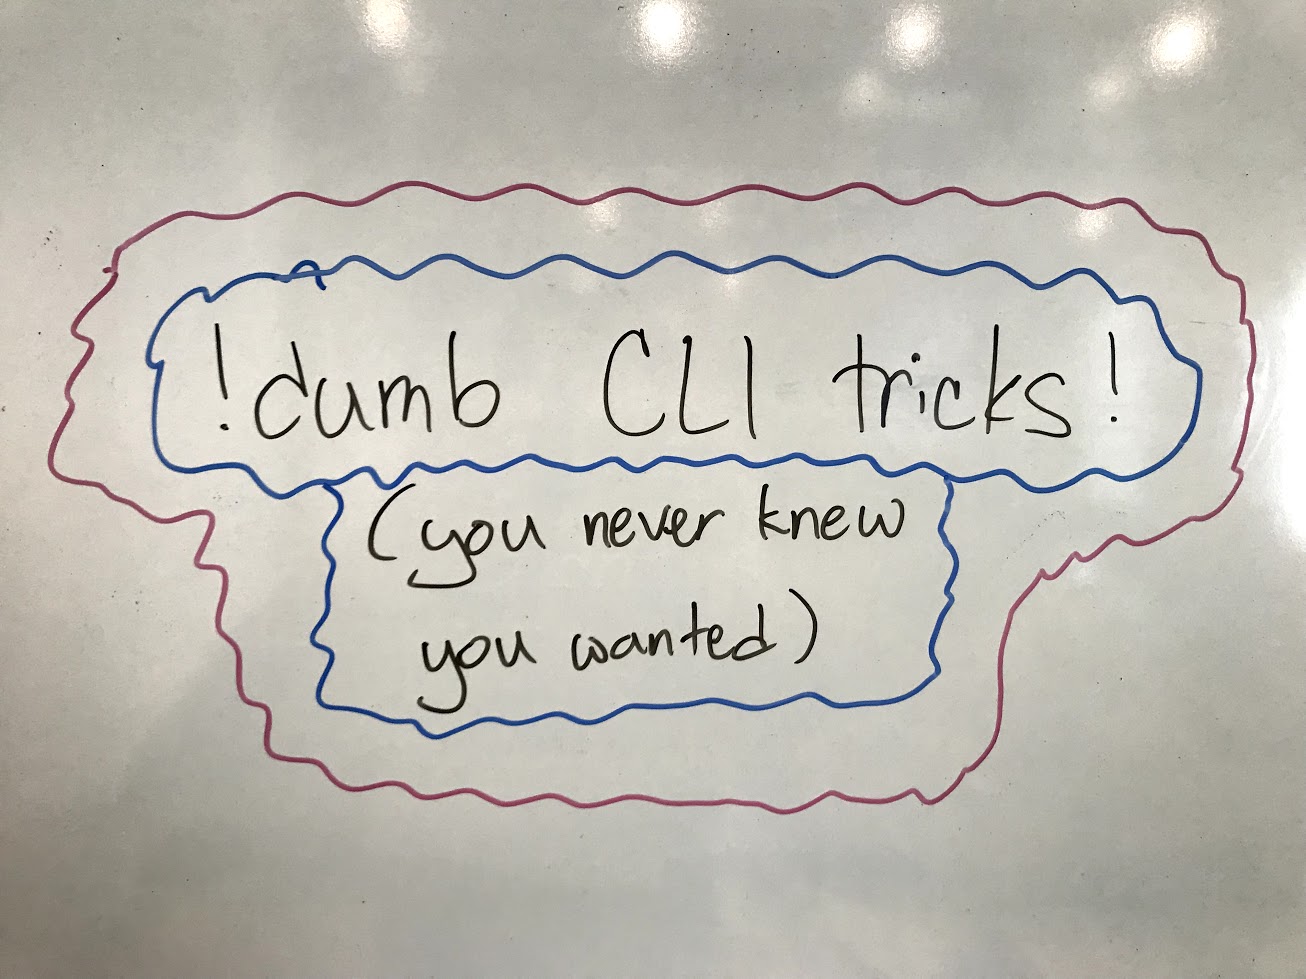 !dumb CLI tricks!
(you never knew
you wanted)